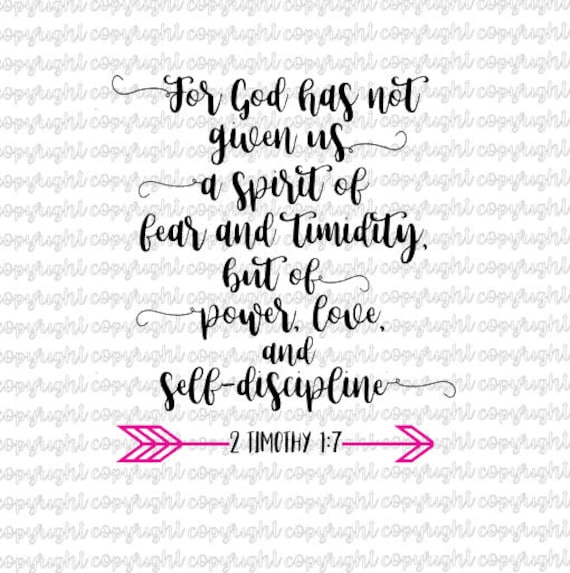 For God has not
given us
a spirit of
fear and timidity,
but of
power, love,
and
self-discipline
2 TIMOTHY 1:7